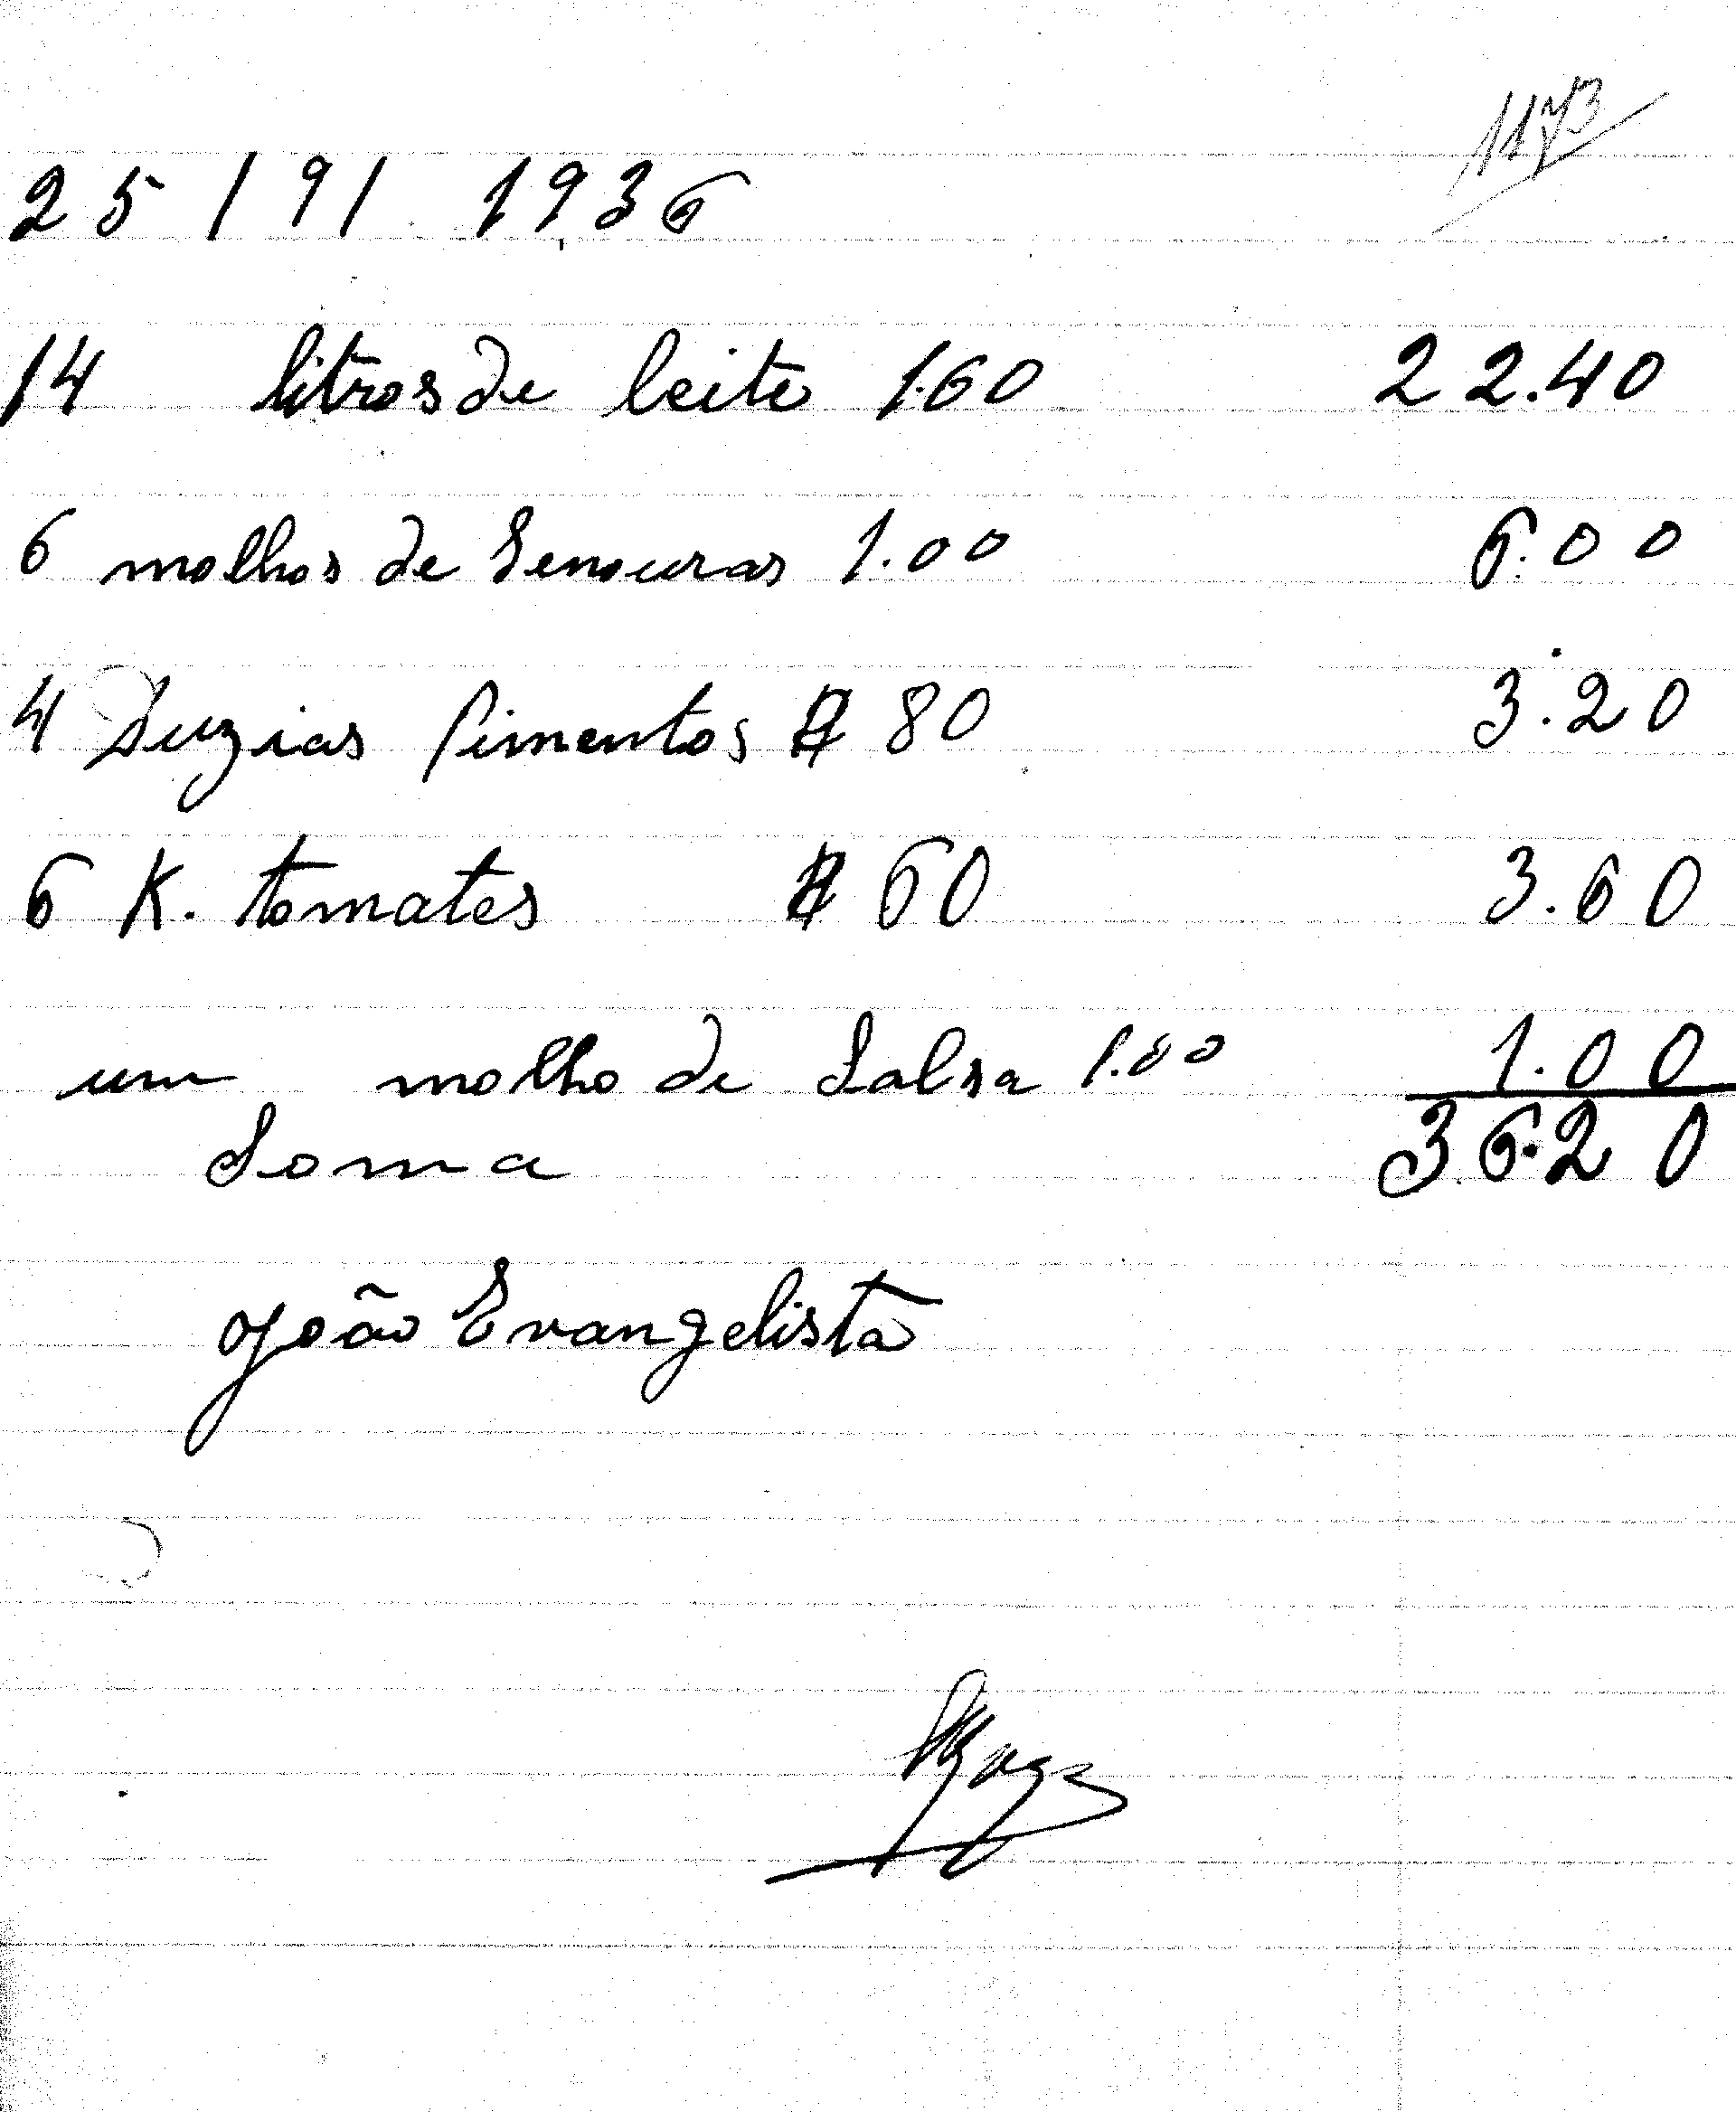 1173
25/9/1936
14 litros de leite 1.60 22.40
6 molhos de Senouras 1.00 6.00
4 Duzias Pimentos $ 80 3.20
6 K. tomates $ 60 3.60
um molho de Salsa 1.00 1.00
Soma 36.20
João Evangelista